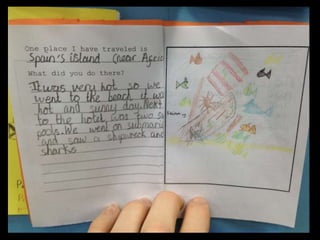 One place I have traveled is
Spain's island (near Africa
What did you do there?
It was very hot so we
went to the beach it was
hot and sunny day. Next
to the hotel, was two sw
pools. We went on submary
and saw a shipwreck and
sharks